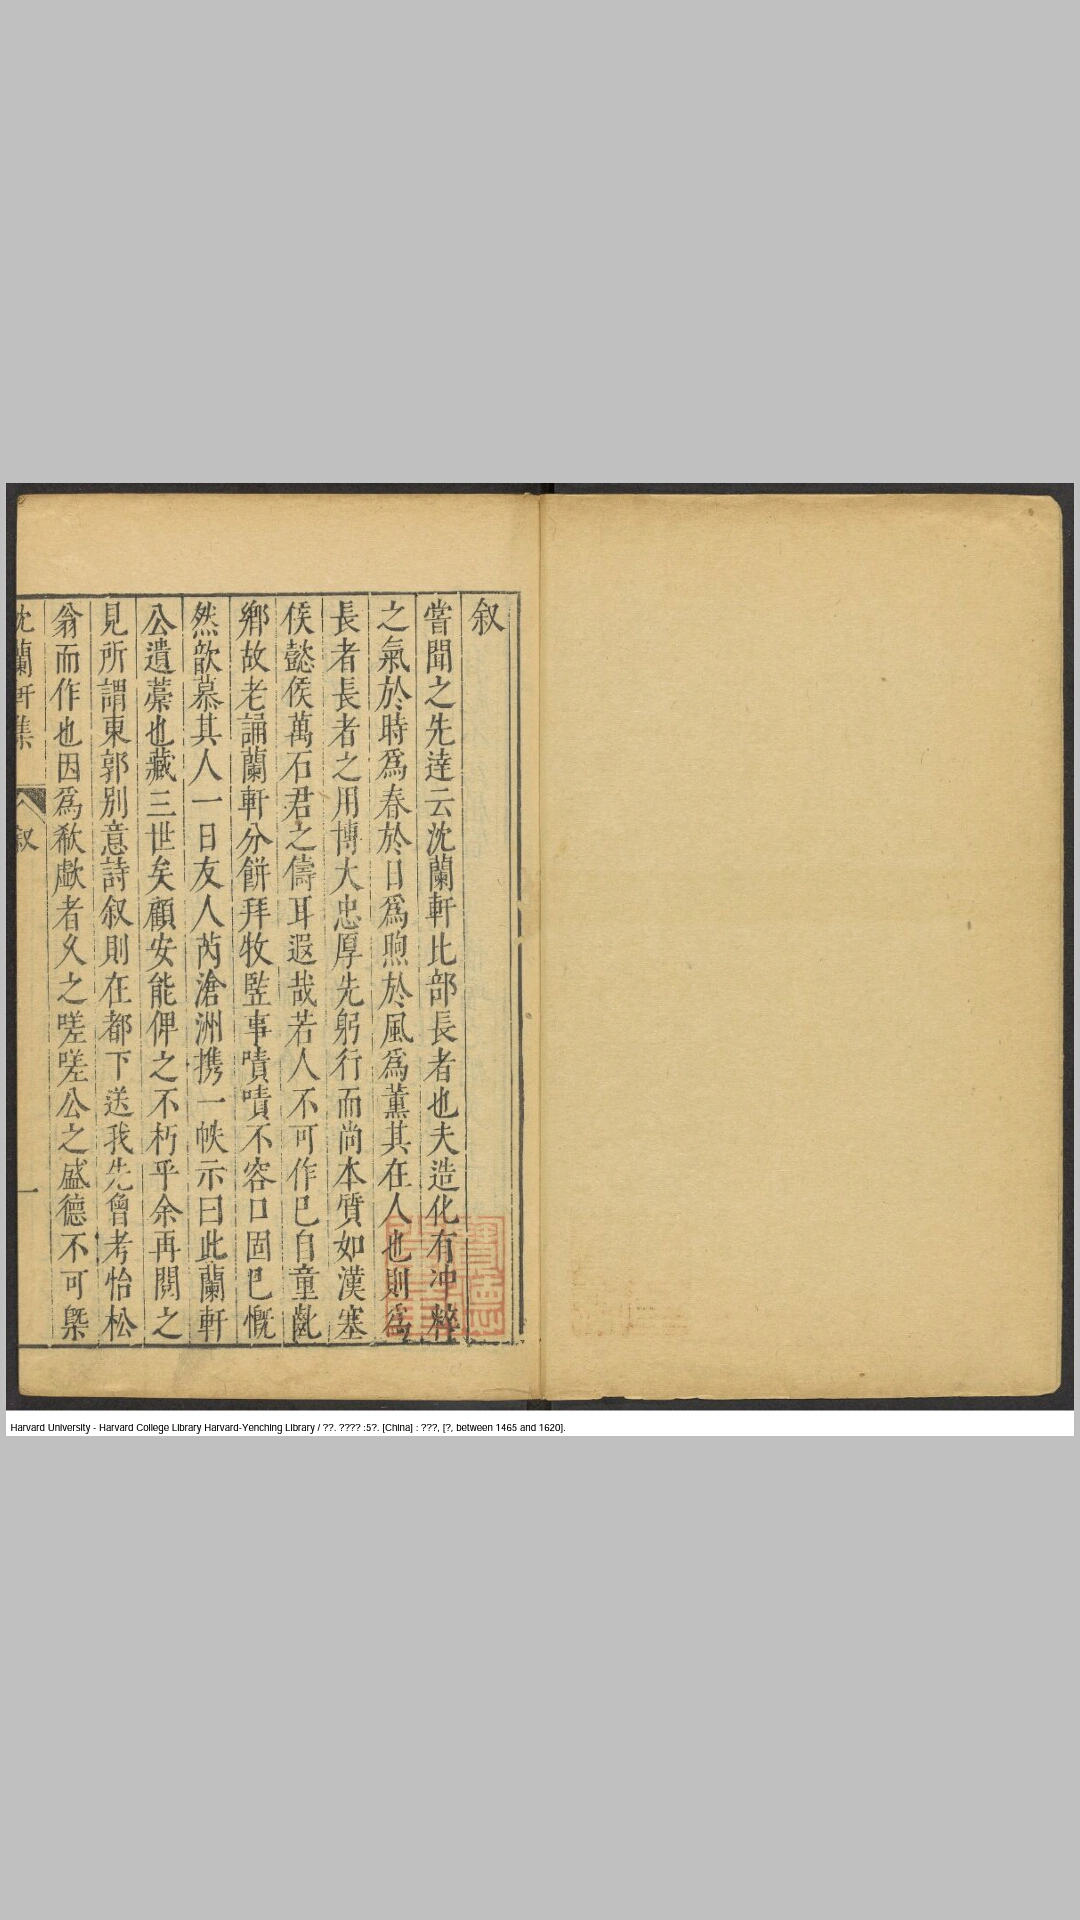 叙
嘗聞之先達云沈蘭軒比部長者也夫造化有冲粹
之氣於時爲春於日爲煦於風爲薰其在人也則爲
長者長者之用博大忠厚先躬行而尚本質如漢塞
侯懿侯萬石君之儔耳遐哉若人不可作已自童齔
鄉故老誦蘭軒分餅拜牧監事嘖嘖不容口固已慨
然歆慕其人一日友人芮滄洲携一帙示曰此蘭軒
公遺藁也藏三世矣顧安能俾之不朽乎余再閱之
見所謂東郭别意詩叙則在都下送我先曾考怡松
翁而作也因爲欷歔者久之嗟嗟公之盛德不可槩
沈蘭軒集
叙
一
Harvard University - Harvard College Library Harvard-Yenching Library / ??. ???? :5?. [China] : ???, [?, between 1465 and 1620].